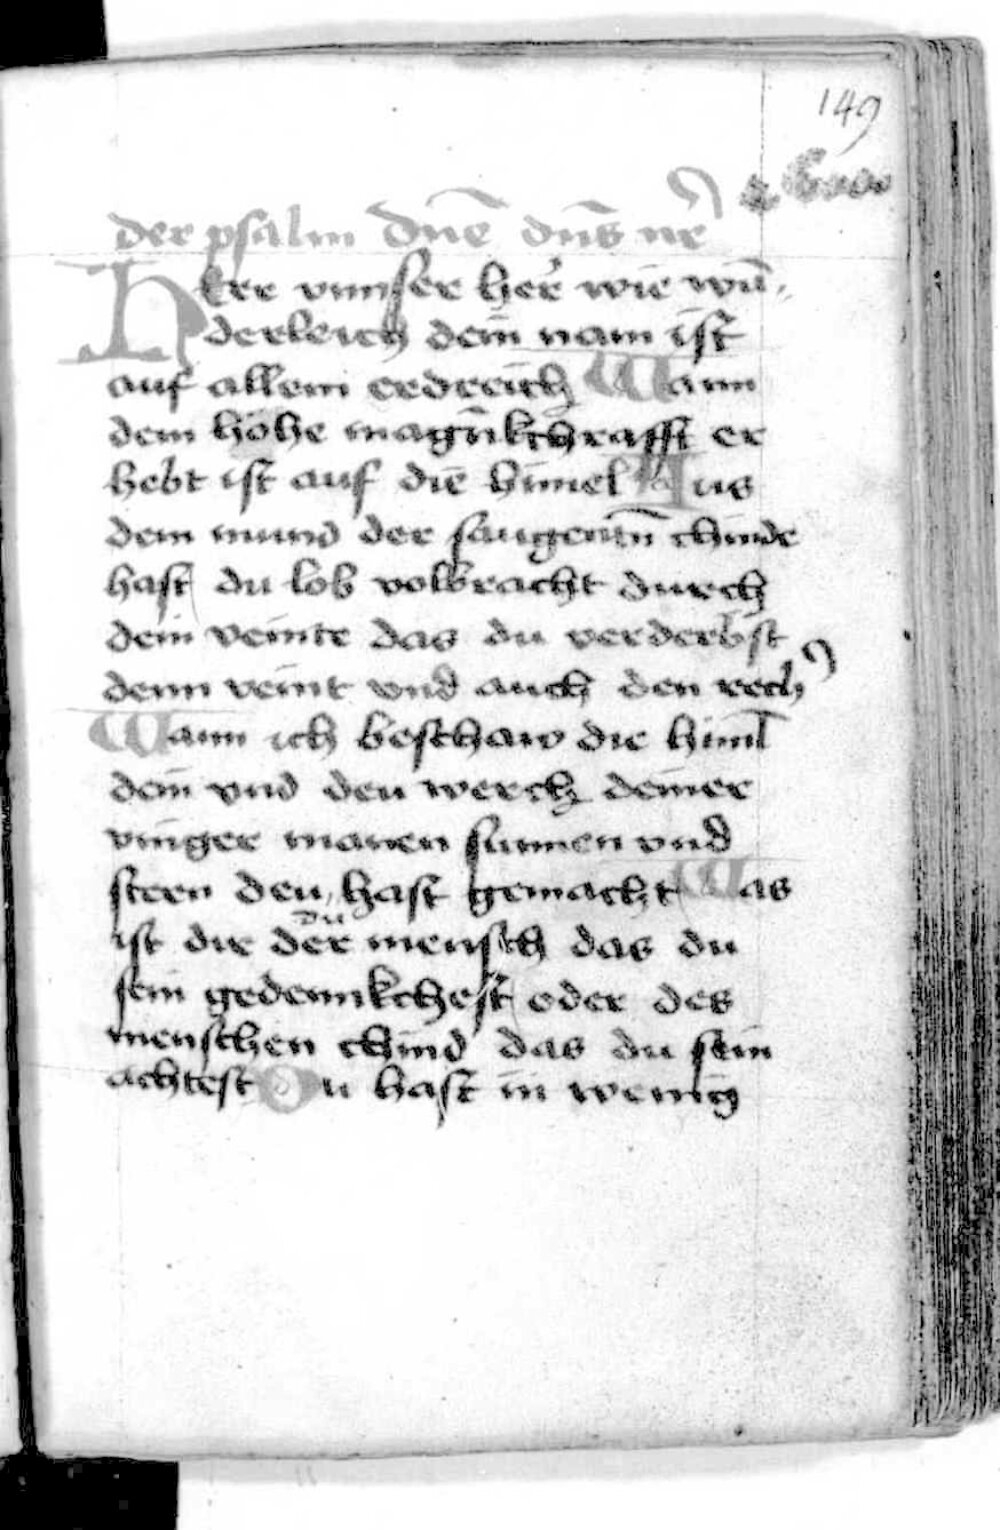 149
der psalm dn̄e dn̄s nr̄
Herr vnnser her̄ wie wū„
derleich dein nam ist
auf allem erdreich Wann
dem höhe magn̄kchrafft er
hebt ist auf die himel Aus
dem mund der saugentn̄ chinde
hast du lob volbracht durch
dein veinte das du verderbst
denn veint vnd auch den rech⁹
Wann ich beschaw die himl̄
dein vnd den werch deiner
vinger manen sunnen vnd
stern den hast gemacht Was
du
ist dir der mensch das du
sein gedennkchest oder des
menschen chind das du sein
achtest Du hast in wenig